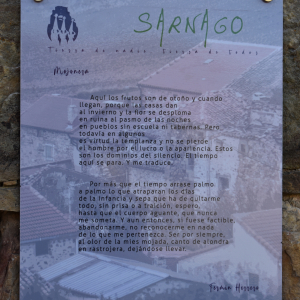 SARNAGO
Tierra de nadie, tierra de todos
Majanera
Aquí los frutos son de otoño y cuando
llegan, porque las casas dan
al invierno y la flor se desploma
en ruina al pasmo de las noches
en pueblos sin escuela ni tabernas. Pero
todavía en algunos
es virtud la templanza y no se pierde
el hombre por el lucro o la apariencia. Estos
son los dominios del silencio. El tiempo
aquí se para. Y me traduce.
Por más que el tiempo arrase palmo
a palmo lo que atraparon los días
de la infancia y sepa que ha de quitarme
todo, sin prisa o a traición, espero,
hasta que el cuerpo aguante, que nunca
me someta. Y aun entonces, si fuese factible,
abandonarme, no reconocerme en nada
de lo que me pertenezca. Ser por siempre
el olor de la mies mojada, canto de alondra
en rastrojera, dejándose llevar.
Fermín Herrero